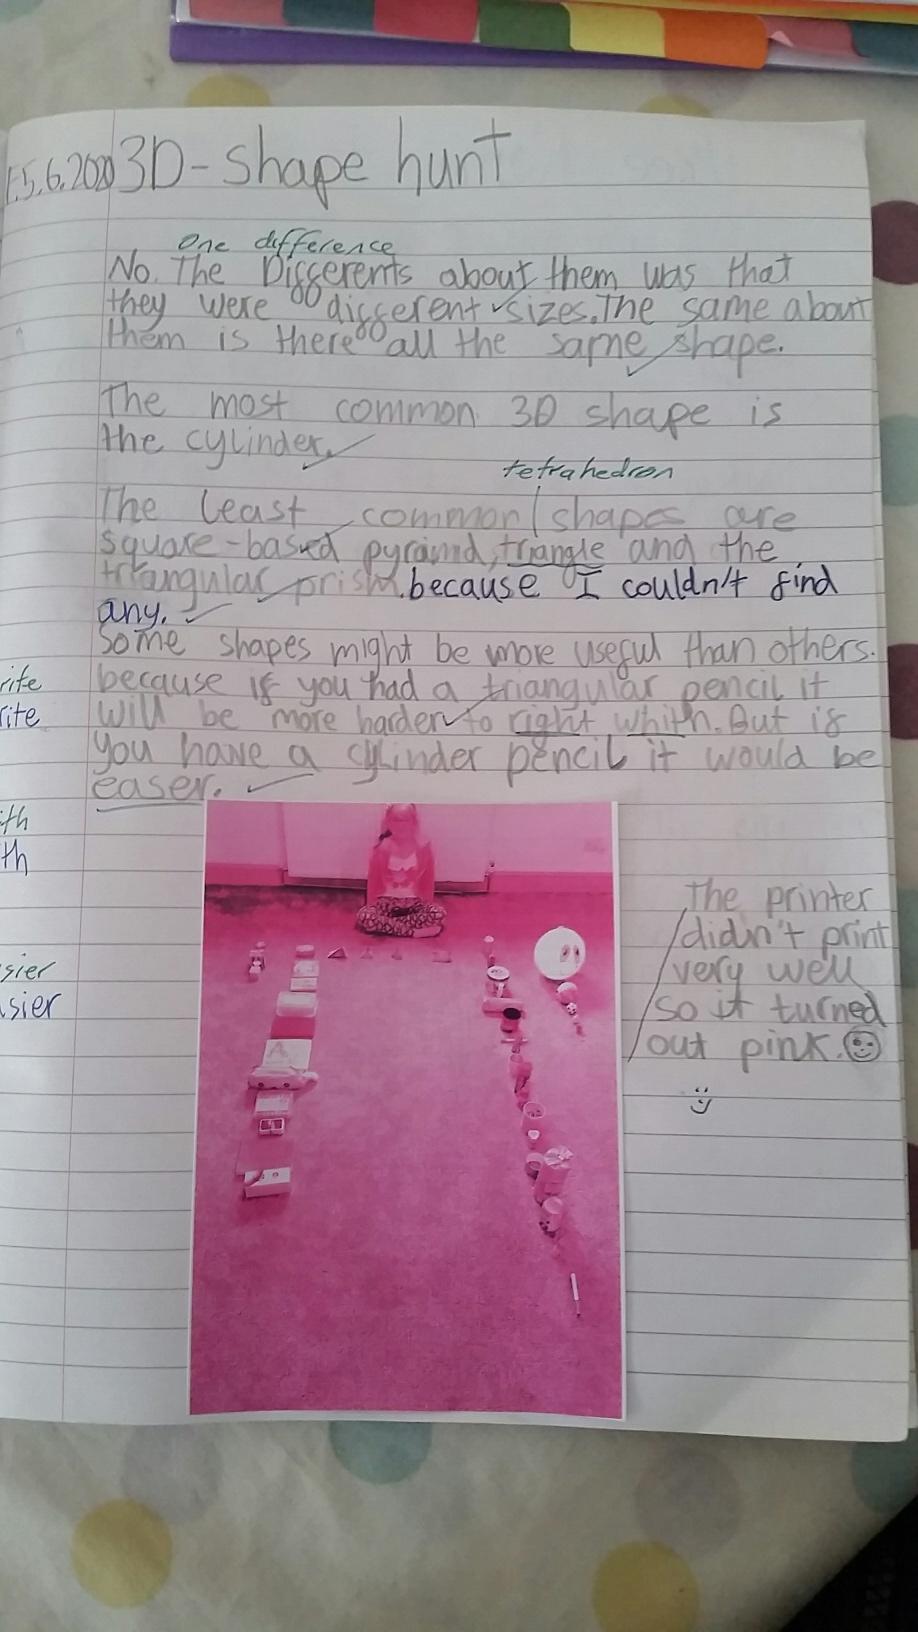 5.6.2020 3D-Shape hunt
one difference
No. The Differents about them was that
they were different sizes. The same about
them is there all the same shape.
The most common 3D shape is
the cylinder.
tetrahedron
The least common shapes are
square-based pyramid, triangle and the
triangular prism. because I couldn't find
any.
Some shapes might be more useful than others.
because if you had a triangular pencil it
rite
will be more harder to right whith. But if
rite
you have a cylinder pencil it would be
easer.
ith
th
sier
asier
The printer
didn't print
very well
so it turned
out pink.